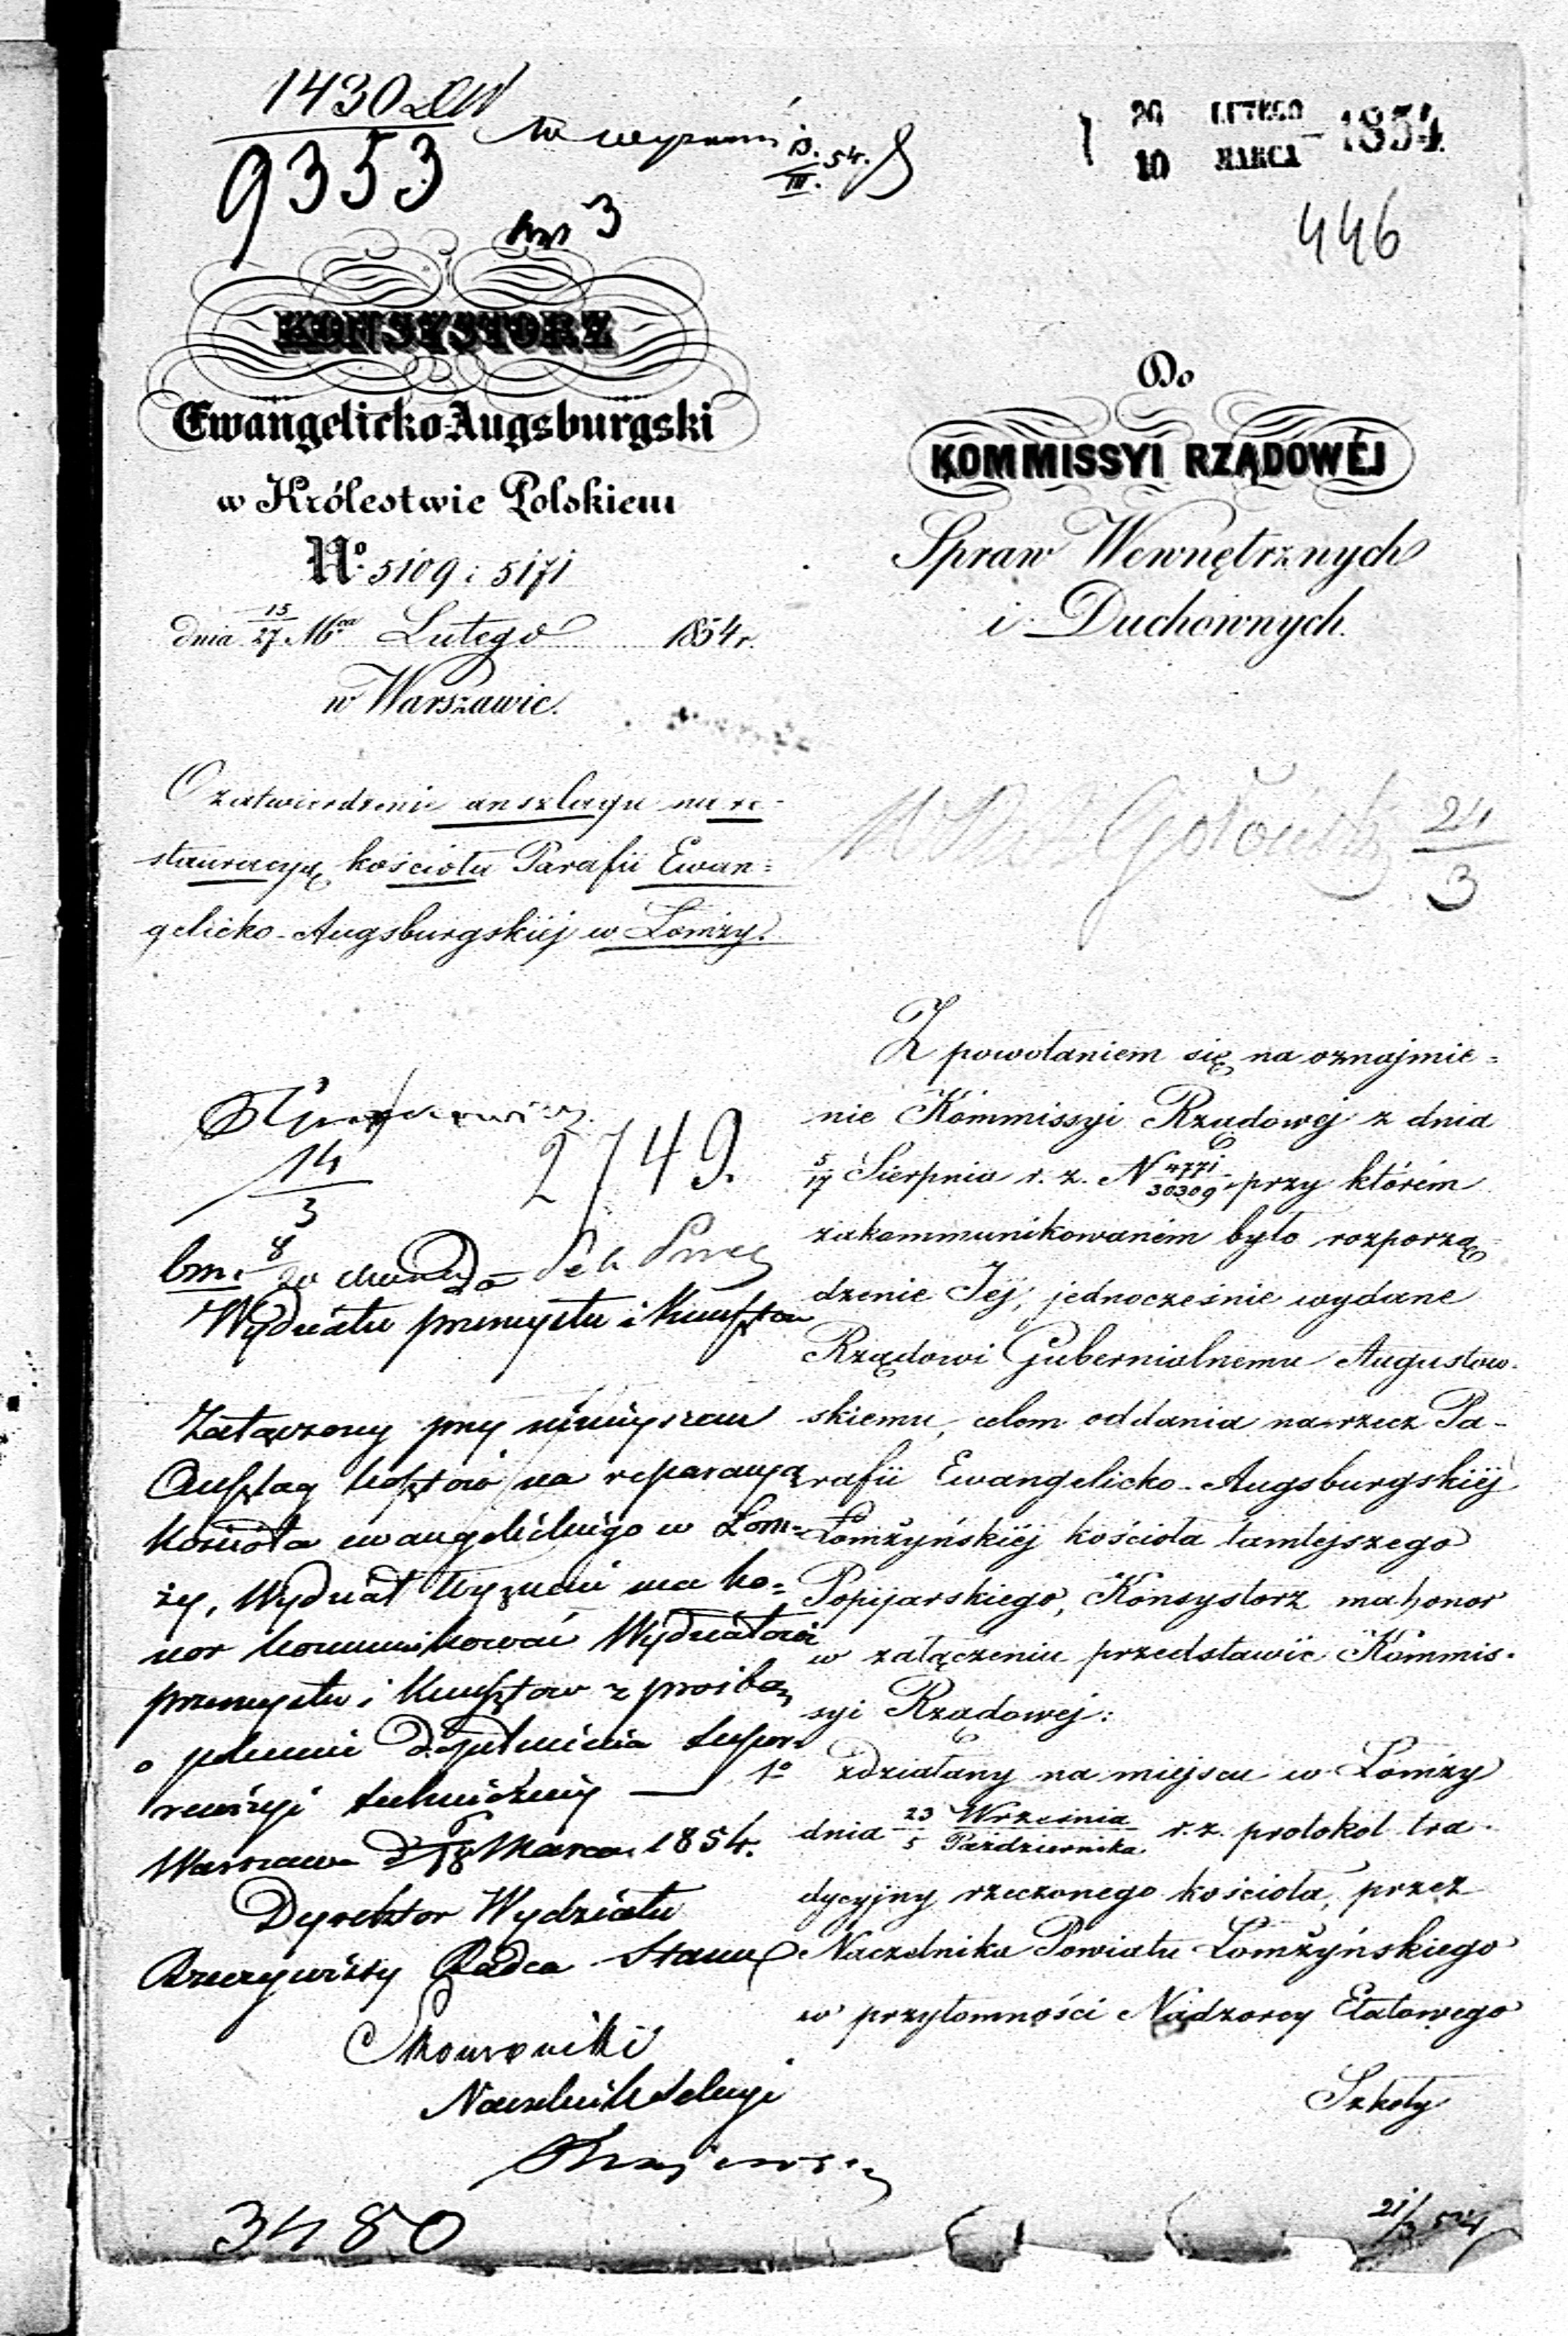 1430
9353
do wyznań 13/III. 54.
26 LUTEGO
10 MARCA 1854.
446
KONSYSTORZ
Ewangelicko-Augsburgski
w Królestwie Polskiem
No. 5109 i 5171
dnia 15/27 Mca Lutego 1854 r.
w Warszawie.
O zatwierdzenie anszlagu na re-
stauracyą kościoła Parafii Ewan=
gelicko-Augsburgskiéj w Łomży.
Do
KOMMISSYI RZĄDOWÉJ
Spraw Wewnętrznych
i Duchownych.
24/3
14/3
2749.
Wydziału przemysłu i Kunsztów
Załączony przy niniejszem
Anszlag kosztów na reparacyą
Kościoła ewangelickiego w Łom=
ży, Wydział Wyznań ma ho=
nor kommunikować Wydziałowi
przemysłu i Kunsztów z prośbą
o polecenie dopełnienia super-
rewizyi technicznéj —
Warszawa d. 6/18 Marca 1854.
Dyrektor Wydziału
Rzeczywisty Radca Stanu
Naczelnik Sekcyi
3480
Z powołaniem się na oznajmie=
nie Kommissyi Rządowej z dnia
5/17 Sierpnia r. z. N 4771/30309, przy którém
zakommunikowaném było rozporzą=
dzenie Jéj, jednocześnie wydane
Rządowi Gubernialnemu Augustow-
skiemu, celem oddania na rzecz Pa-
rafii Ewangelicko-Augsburgskiéj
Łomżyńskiéj kościoła tamtejszego
Popijarskiego, Konsystorz ma honor
w załączeniu przedstawić Kommis-
syi Rządowej:
1o zdziałany na miejscu w Łomży
dnia 23 Września/5 Października r. z. protokół tra-
dycyjny rzeczonego kościoła, przez
Naczelnika Powiatu Łomżyńskiego
w przytomności Nadzorcy Etatowego
Szkoły
21/3 54